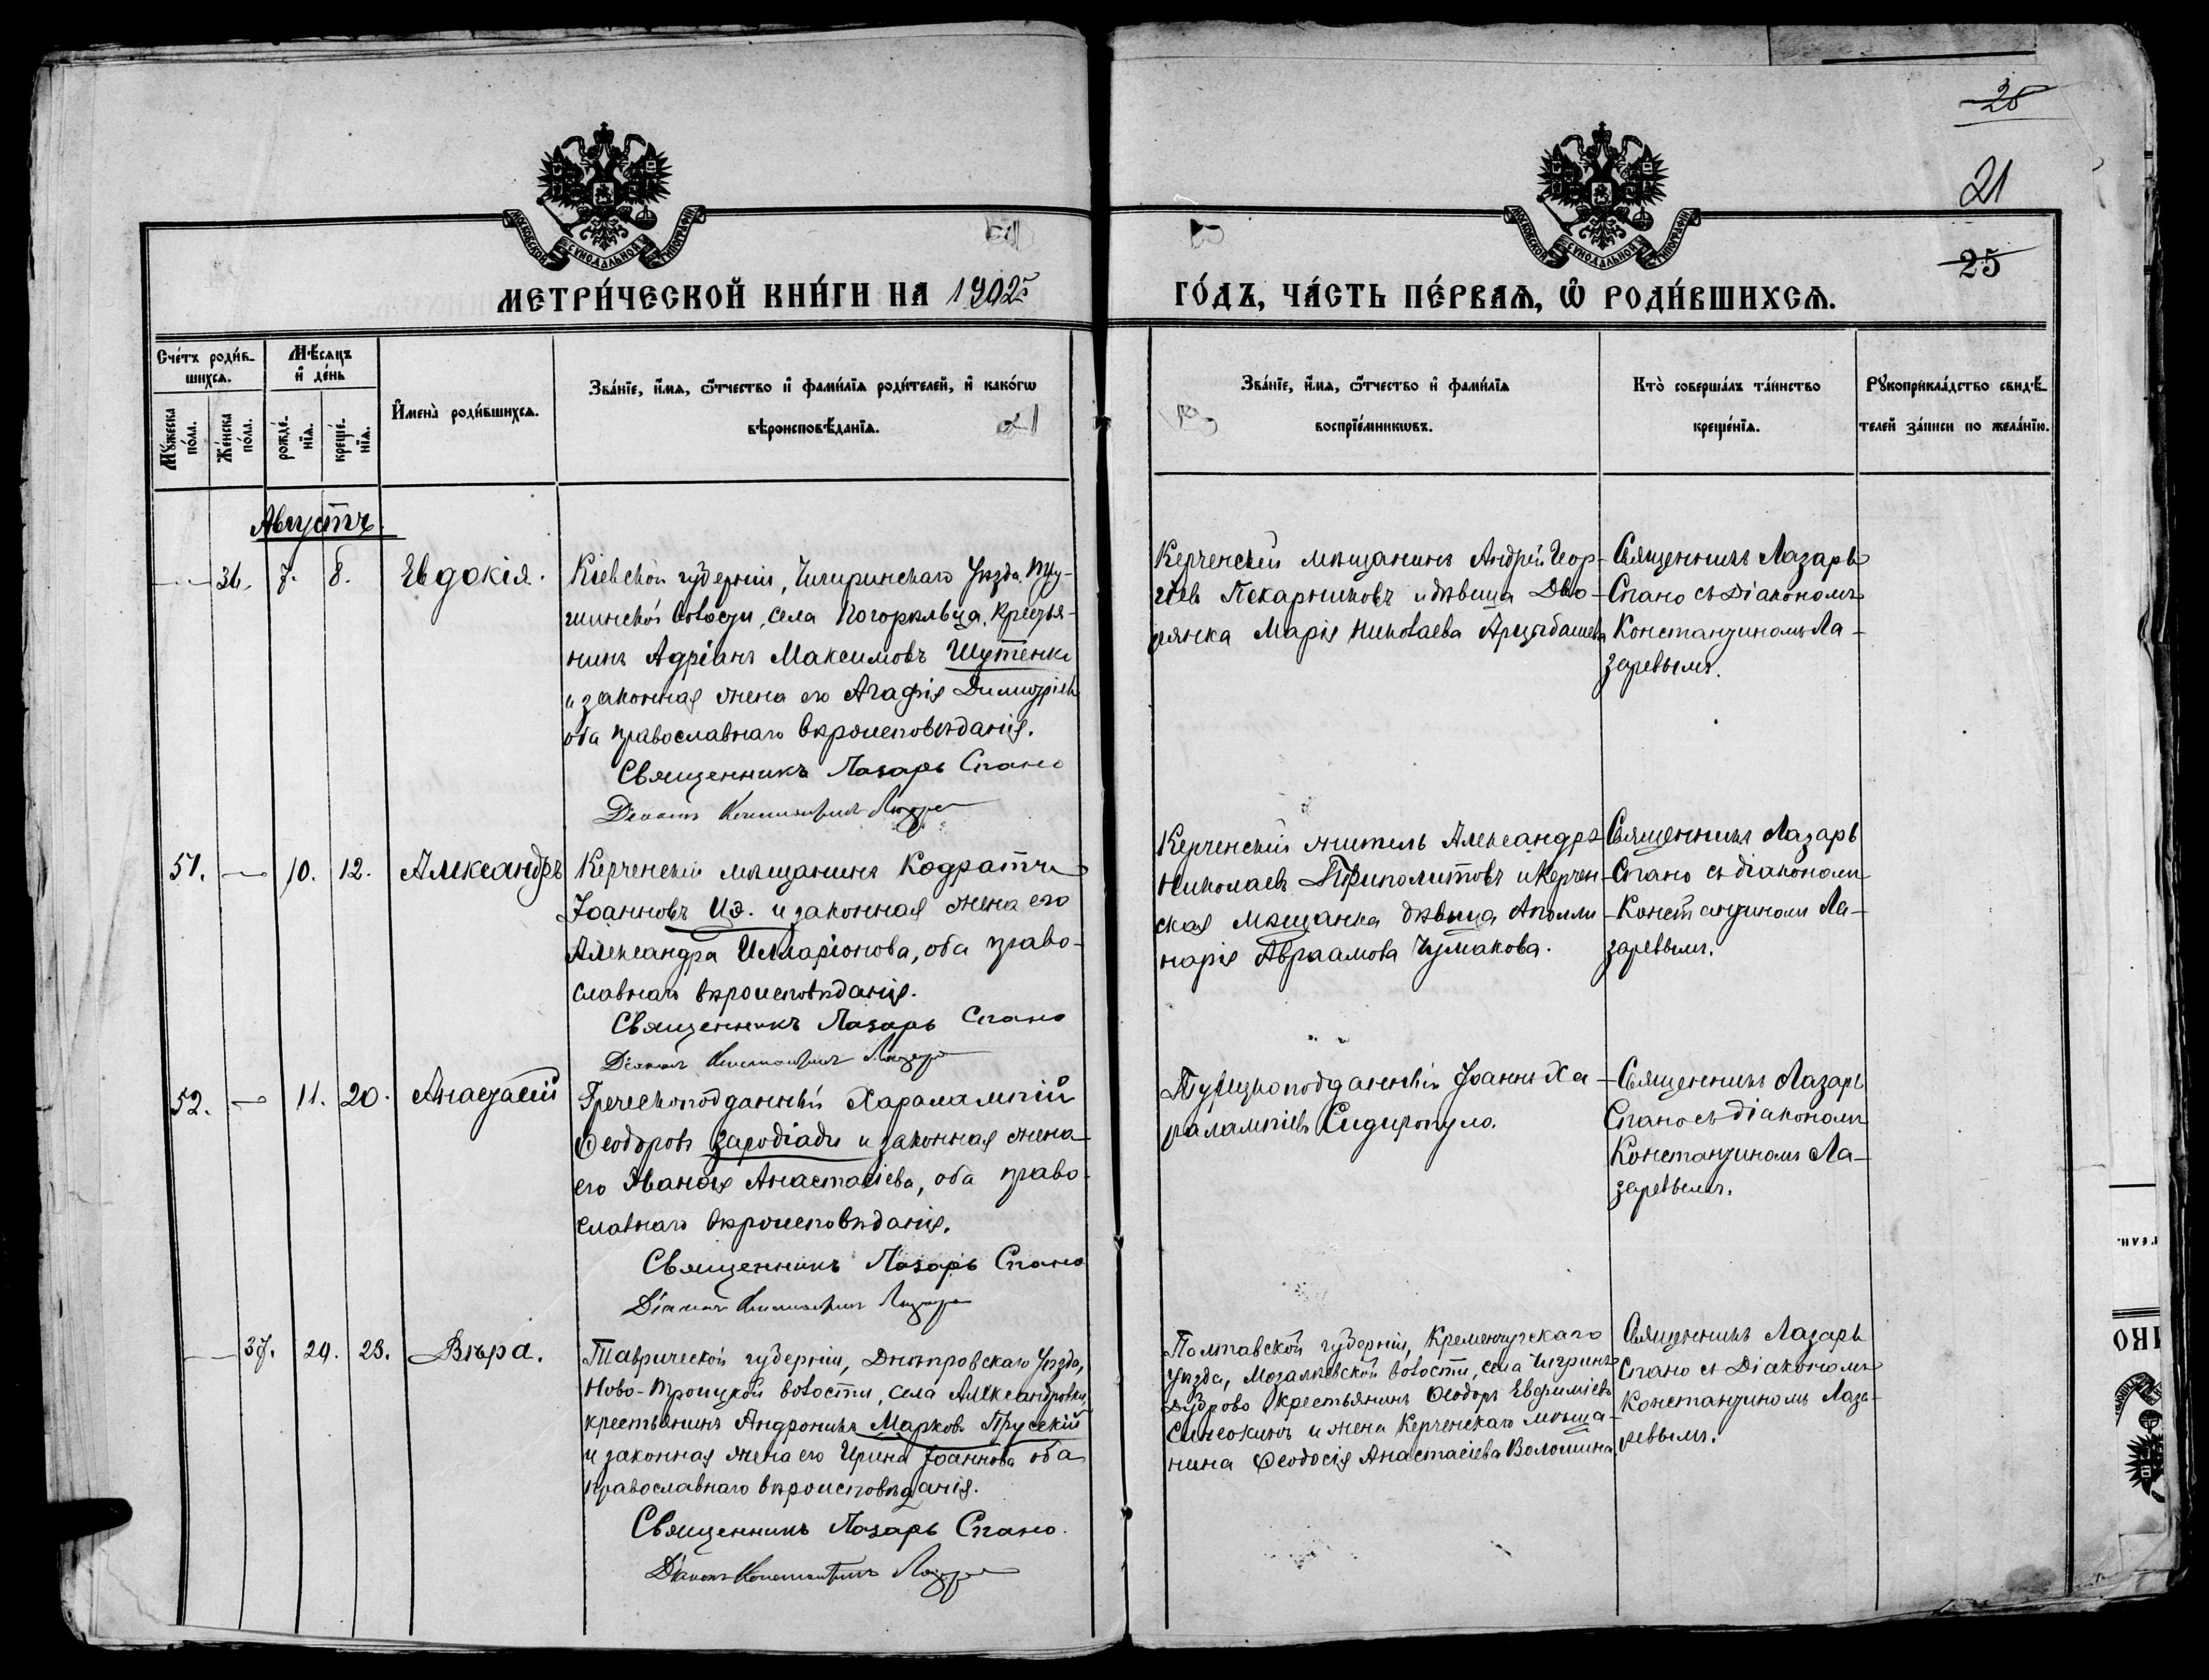 28
21
25
МОСКОВСКОЙ СѴНОДАЛЬНОЙ ТИПОГРАФІИ
МОСКОВСКОЙ СѴНОДАЛЬНОЙ ТИПОГРАФІИ
МЕТРИ́ЧЕСКОЙ КНИ́ГИ НА 1902й
ГО́ДЪ, ЧА́СТЬ ПЕ́РВАѦ, Ѡ҆ РОДИ́ВШИХСѦ.
Сче́тъ роди́в-
шихсѧ.
Мѣ́сѧцъ
и҆ де́нь
Мꙋ́жеска
по́ла.
Же́нска
по́ла.
рожде́-
нїѧ.
креще́-
нїѧ.
И҆мена̀ роди́вшихсѧ.
Зва́нїе, и҆́мѧ, ѻ҆́тчество и҆ фами́лїѧ роди́телей, и҆ како́гѡ
вѣроисповѣ́данїѧ.
Зва́нїе, и҆́мѧ, ѻ҆́тчество и҆ фами́лїѧ
воспрїе́мникѡвъ.
Кто̀ соверша́лъ та́инство
креще́нїѧ.
Рꙋкоприкла́дство свидѣ́-
телей за́писи по жела́нїю.
Августъ
— 36. 7. 8. Евдокія.
Кіевской губерніи, Чигиринскаго Уѣзда,
шинской волости, села Погорѣльца, кресть-
нинъ Адріанъ Максимовъ Шутенко
и законная жена его Агафія Димитріева
оба православнаго вѣроисповѣданія.
Священникъ Лазарь Спано
Діаконъ Константинъ Лазарев
Керченскій мѣщанинъ Андрей Геор-
гіевъ Пекарниковъ и дѣвица Дво-
рянка Марія Николаева Арцыбашева
Священникъ Лазарь
Спано съ Діакономъ
Константиномъ Ла-
заревымъ.
51. — 10. 12. Александръ
Керченскій мѣщанинъ Кодратъ
Іоанновъ Цэ. и законная жена его
Александра Илларіонова, оба право-
славнаго вѣроисповѣданія.
Священникъ Лазарь Спано
Діаконъ Константинъ Лазарев
Керченскій житель Александръ
Николаевъ Триполитовъ и Керчен-
ская мѣщанка дѣвица Аполли-
нарія Авраамова Чумакова.
Священникъ Лазарь
Спано съ діакономъ
Константиномъ Ла-
заревымъ.
52. — 11. 20. Анастасій
Греческоподданный Харалампій
Ѳеодоровъ Зародіади и законная жена
его Иванъія Анастасіева, оба право-
славнаго вѣроисповѣданія.
Священникъ Лазарь Спано
Діаконъ Константинъ Лазарев
Турецкоподданный Іоаннъ Ха-
ралампіевъ Сидиропуло.
Священникъ Лазарь
Спано съ діакономъ
Константиномъ Ла-
заревымъ.
— 37. 29. 23. Вѣра.
Таврической губерніи, Днѣпровскаго Уѣзда,
Ново-Троицкой волости, села Александровки,
крестьянинъ Андроникъ Марковъ Прускій
и законная жена его Ирина Іоаннова оба
православнаго вѣроисповѣданія.
Священникъ Лазарь Спано.
Діаконъ Константинъ Лазарев
Полтавской губерніи, Кременчугскаго
Уѣзда, волости, села Чигринъ
Дуброво крестьянинъ Ѳеодоръ Евфиміевъ
Синеокинъ и жена Керченскаго мѣща-
нина Ѳеодосія Анастасіева Волошина
Священникъ Лазарь
Спано съ Діакономъ
Константиномъ Лаза-
ревымъ.